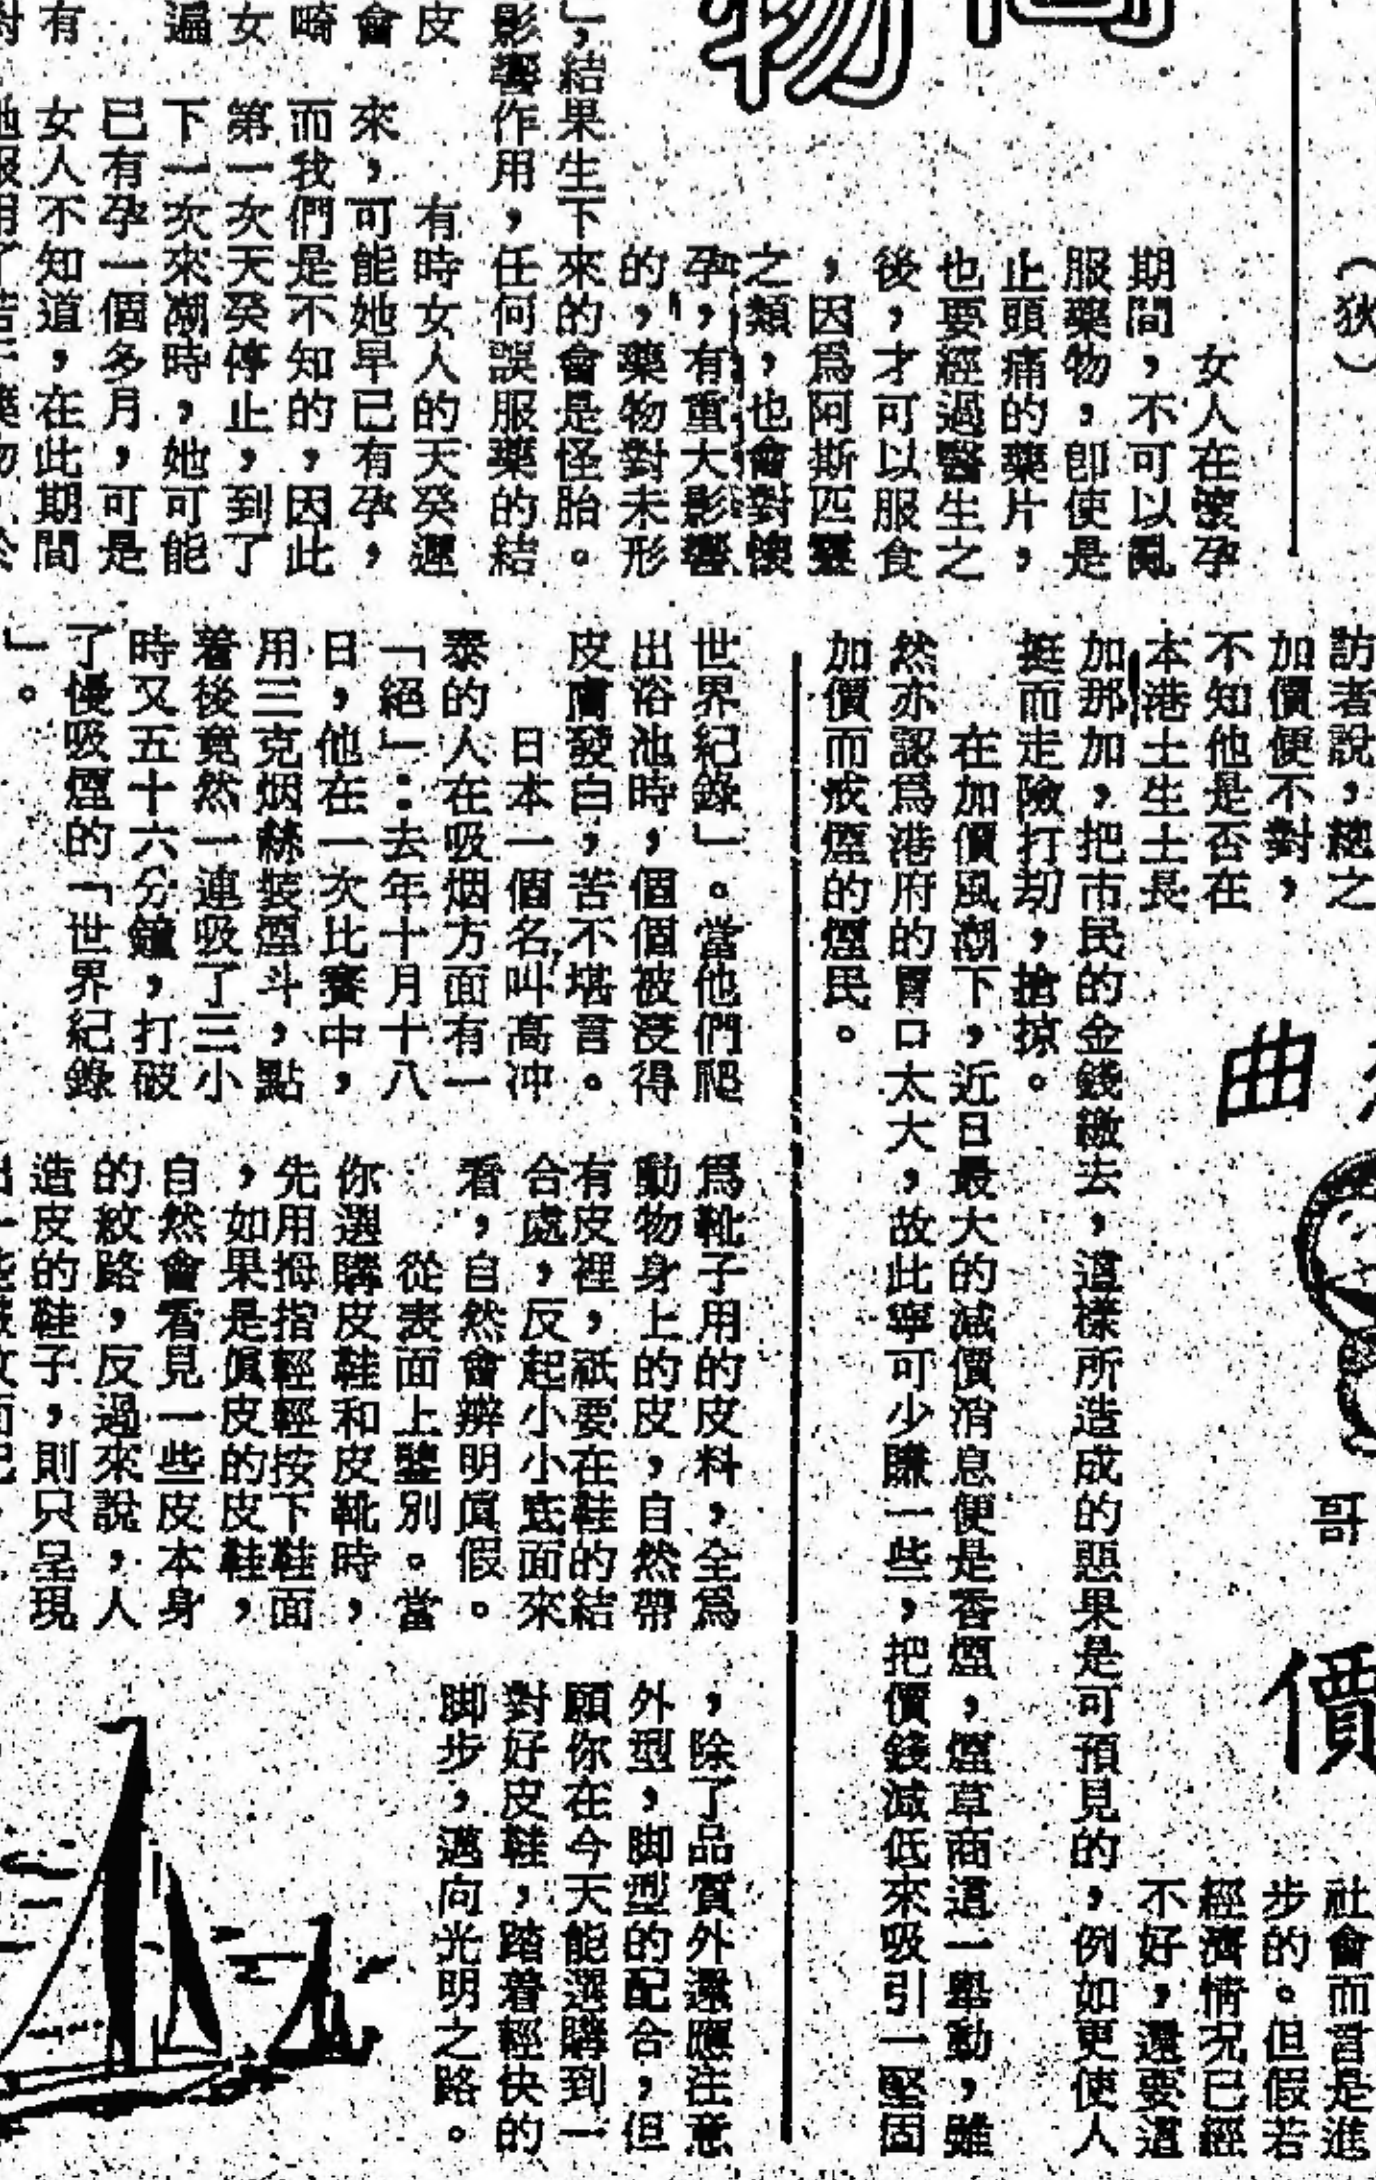 物
（狄）
女人在懷孕
期間，不可以亂
服藥物，卽使是
止頭痛的藥片，
也要經過醫生之
後，才可以服食
，因爲阿斯匹靈
之類，也會對懷
孕，有重大影響
的，藥物對未形
」，結果生下來的會是怪胎。
影響作用，任何誤服藥的結
皮
有時女人的天癸遲
會
來，可能她早已有孕，
畸
而我們是不知的，因此
女
第一次天癸停止，到了
遍
下一次來潮時，她可能
已有孕一個多月，可是
有
女人不知道，在此期間
訪者說，總之
加價便不對，
不知他是否在
本港土生土長
曲
哥
價
社會而言是進
步的。但假若
經濟情况已經
不好，還要這
加那加，把市民的金錢繳去，這樣所造成的惡果是可預見的，例如更使人
挺而走險打刧，搶掠。
在加價風潮下，近日最大的減價消息便是香煙，煙草商這一舉動，雖
然亦認爲港府的胃口太大，故此寧可少賺一些，把價錢減低來吸引一堅固
加價而戒煙的煙民。
世界紀錄」。當他們爬
出浴池時，個個被浸得
皮膚發白，苦不堪言。
日本一個名叫高冲
泰的人在吸烟方面有一
「絕」：去年十月十八
日，他在一次比賽中，
用三克烟絲裝煙斗，點
着後竟然一連吸了三小
時又五十六分鐘，打破
了慢吸煙的「世界紀錄
」。
爲靴子用的皮料，全爲
動物身上的皮，自然帶
有皮裡，祇要在鞋的結
合處，反起小小底面來
看，自然會辨明眞假。
從表面上鑒別。當
你選購皮鞋和皮靴時，
先用拇指輕輕按下鞋面
，如果是眞皮的皮鞋，
自然會看見一些皮本身
的紋路，反過來說，人
造皮的鞋子，則只呈現
，除了品質外還應注意
外型，脚型的配合，但
願你在今天能選購到一
對好皮鞋，踏着輕快的
脚步，邁向光明之路。